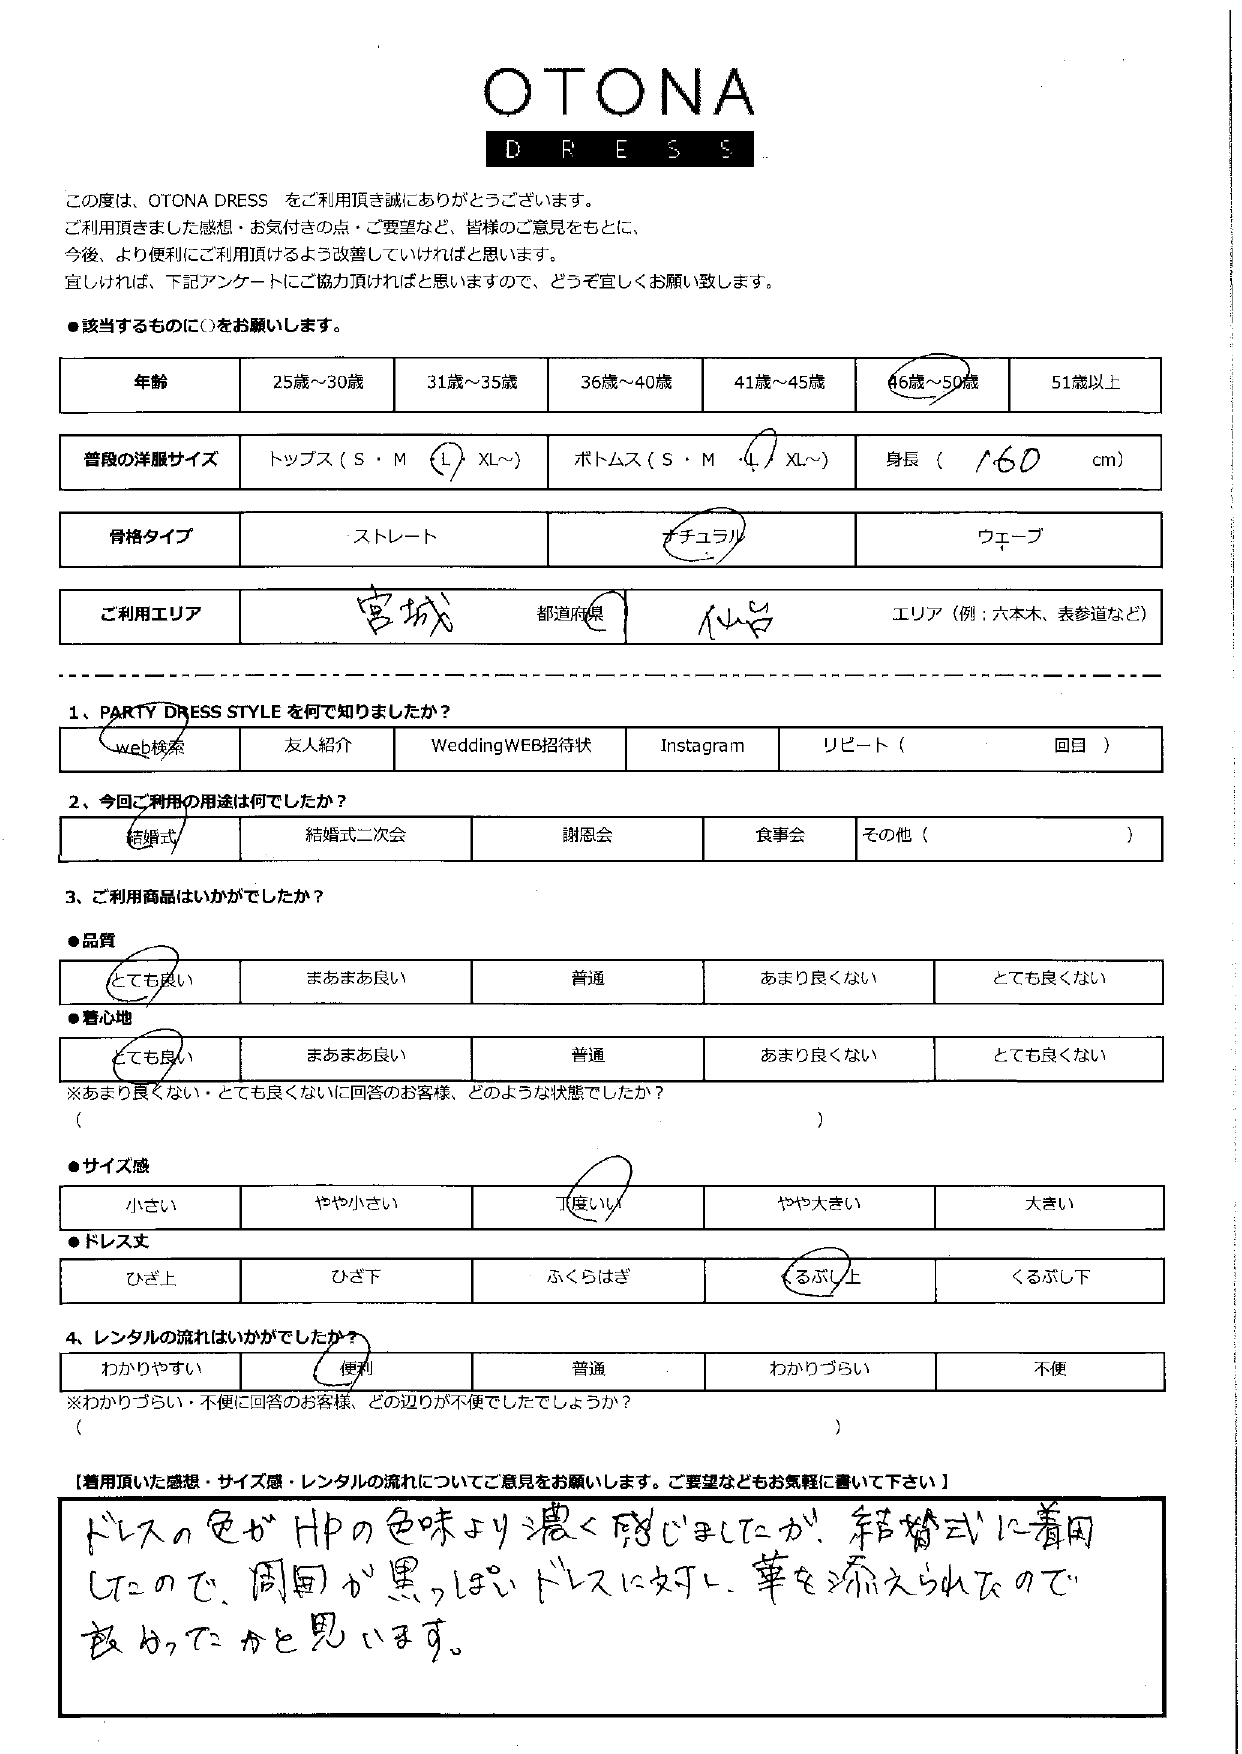 OTONA
DRESS
この度は、OTONA DRESS をご利用頂き誠にありがとうございます。
ご利用頂きました感想・お気付きの点・ご要望など、皆様のご意見をもとに、
今後、より便利にご利用頂けるよう改善していければと思います。
宜しければ、下記アンケートにご協力頂ければと思いますので、どうぞ宜しくお願い致します。
●該当するものに○をお願いします。
年齢 25歳～30歳 31歳～35歳 36歳～40歳 41歳～45歳 46歳～50歳 51歳以上
普段の洋服サイズ トップス（ S ・ M ・ L ・ XL～） ボトムス（ S ・ M ・ L ・ XL～） 身長 （ 160 cm）
骨格タイプ ストレート ナチュラル ウェーブ
ご利用エリア 宮城 都道府県 仙台 エリア（例；六本木、表参道など）
1、PARTY DRESS STYLE を何で知りましたか？
web検索 友人紹介 WeddingWEB招待状 Instagram リピート（ 回目 ）
2、今回ご利用の用途は何でしたか？
結婚式 結婚式二次会 謝恩会 食事会 その他（ ）
3、ご利用商品はいかがでしたか？
●品質
とても良い まあまあ良い 普通 あまり良くない とても良くない
●着心地
とても良い まあまあ良い 普通 あまり良くない とても良くない
※あまり良くない・とても良くないに回答のお客様、どのような状態でしたか？
（ ）
●サイズ感
小さい やや小さい 丁度いい やや大きい 大きい
●ドレス丈
ひざ上 ひざ下 ふくらはぎ くるぶし上 くるぶし下
4、レンタルの流れはいかがでしたか？
わかりやすい 便利 普通 わかりづらい 不便
※わかりづらい・不便に回答のお客様、どの辺りが不便でしたでしょうか？
（ ）
【着用頂いた感想・サイズ感・レンタルの流れについてご意見をお願いします。ご要望などもお気軽に書いて下さい 】
ドレスの色が HPの色味より濃く感じましたが、結婚式に着用
したので、周囲が黒っぽいドレスに対し、華を添えられたので
良かったかと思います。